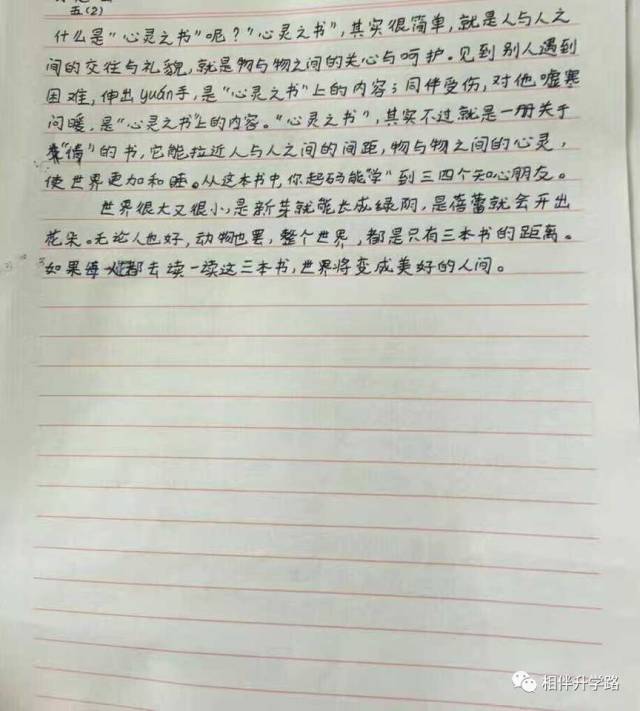 五(2)
什么是“心灵之书”呢？“心灵之书”，其实很简单，就是人与人之
间的交往与礼貌，就是物与物之间的关心与呵护。见到别人遇到
困难，伸出yuán手，是“心灵之书”上的内容；同伴受伤，对他嘘寒
问暖，是“心灵之书”上的内容。“心灵之书”，其实不过就是一册关于
“情”的书，它能拉近人与人之间的间距，物与物之间的心灵，
使世界更加和睡。从这本书中，你起码能“学”到三四个知心朋友。
世界很大又很小，是新芽就能长成绿荫，是蓓蕾就会开出
花朵。无论人也好，动物也罢，整个世界，都是只有三本书的距离。
如果每人都去读一读这三本书，世界将变成美好的人间。
相伴升学路